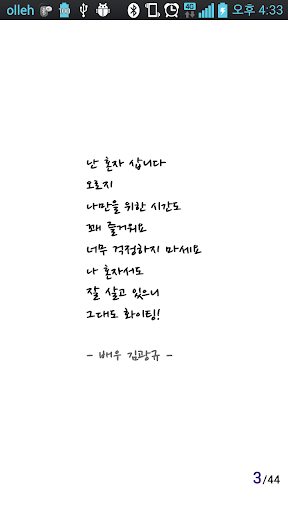 olleh 100 4G 오후 4:33
난 혼자 삽니다
오로지
나만을 위한 시간도
꽤 즐거워요
너무 걱정하지 마세요
나 혼자서도
잘 살고 있으니
그대도 화이팅!
- 배우 김광규 -
3/44